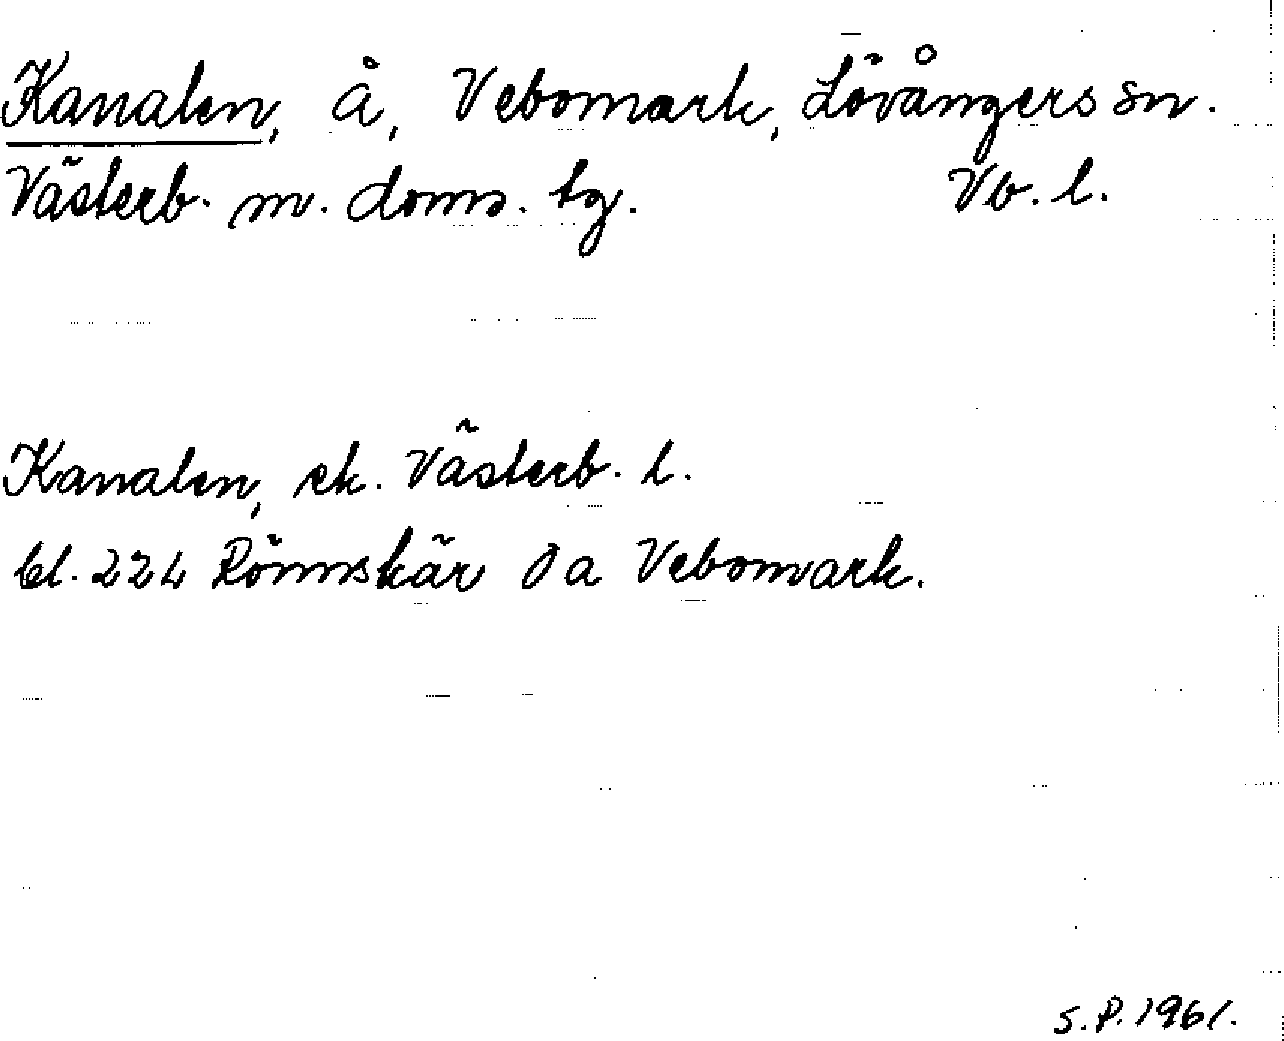 Kanalen, å, Vebomark, Lövångers sn.
Västerb. m. doms. tg. Vb. l.
Kanalen, ek. Västerb. l.
bl. 224 Rönnskär Ja Vebomark.
S.P. 1961.